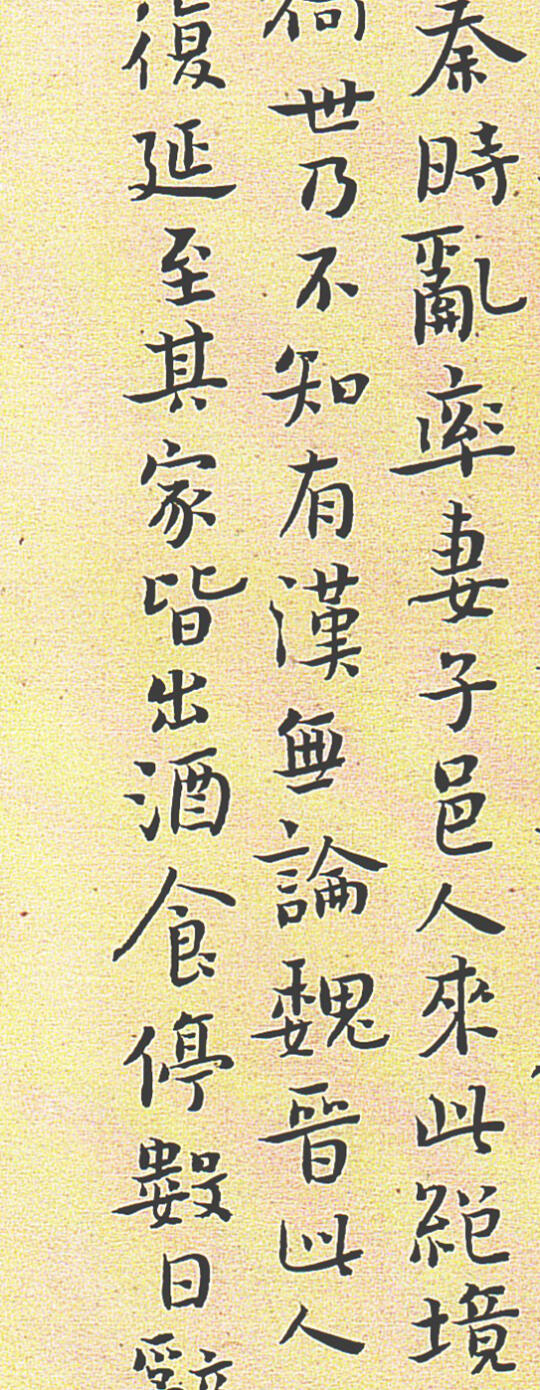 秦時亂率妻子邑人來此絕境
何世乃不知有漢無論魏晉此人
復延至其家皆出酒食停數日辭